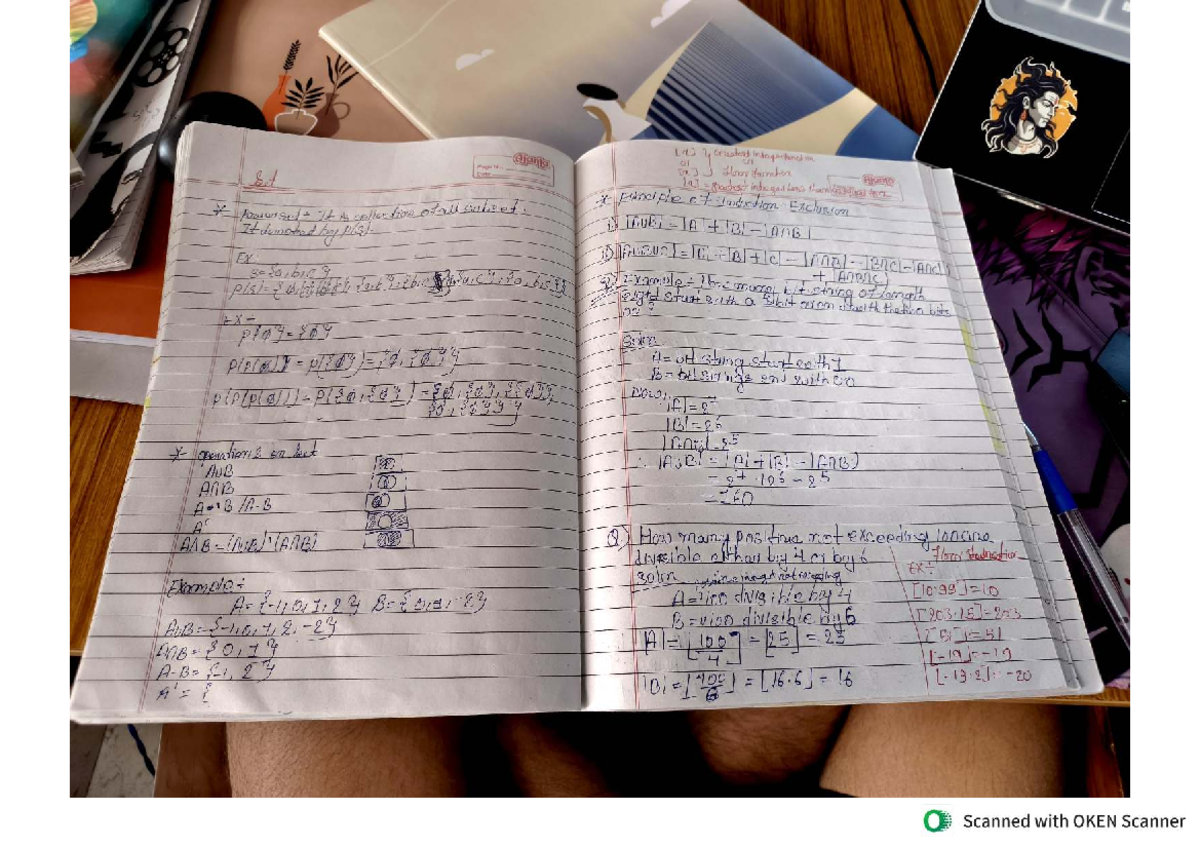 Set
* Powerset → It is collection of all subset.
It denoted by P(S).
Ex:
S = {a, b, c}
Ex -
P{φ} = {φ}
P(P(φ)) = P({φ}) = {φ, {φ}}
P(P(P(φ))) = P({φ, {φ}}) = {φ, {φ}, {{φ}},
{φ, {φ}}}
* operations on set
A∪B
A∩B
A-B
A'
Example:-
A = {-1, 0, 1, 2} B = {0, 1, -2}
A∪B = {-1, 0, 1, 2, -2}
A∩B = {0, 1}
A-B = {-1, 2}
A' = {
Ajanta
[x] → Greatest integer function
or
Floor function
Ajanta
* Principle of Exclusion
i) |A∪B| = |A| + |B| - |A∩B|
ii) |A∪B∪C| = |A| + |B| + |C| - |A∩B| - |B∩C| - |A∩C|
+ |A∩B∩C|
Q) Example - How many bit string of length
eight start with a 1 bit or end with the two bits
00?
Soln
A = bit string start with 1
B = bit strings end with 00
Now,
|A| = 2⁷
|B| = 2⁶
|A∩B| = 2⁵
∴ |A∪B| = |A| + |B| - |A∩B|
= 2⁷ + 2⁶ - 2⁵
= 160
Q) How many positive not exceeding 100 are
divisible either by 4 or by 6
soln
A = divisible by 4
B = divisible by 6
|A| = [100/4] = [25] = 25
|B| = [100/6] = [16.6] = 16
Floor function
Ex:-
[10.99] = 10
[203.15] = 203
[51] = 51
[-19] = -19
[-19.2] = -20
Scanned with OKEN Scanner